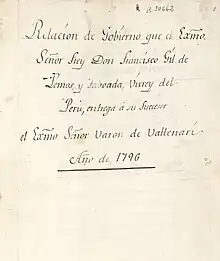 R.30662
Relación de Gobierno que el Exmo.
Señor Frey Don Francisco Gil de
Lemos, y Taboada, Virrey del
Perú, entrega à su Sucesor
el Exmo Señor Varon de Vallenari-
Año de 1796